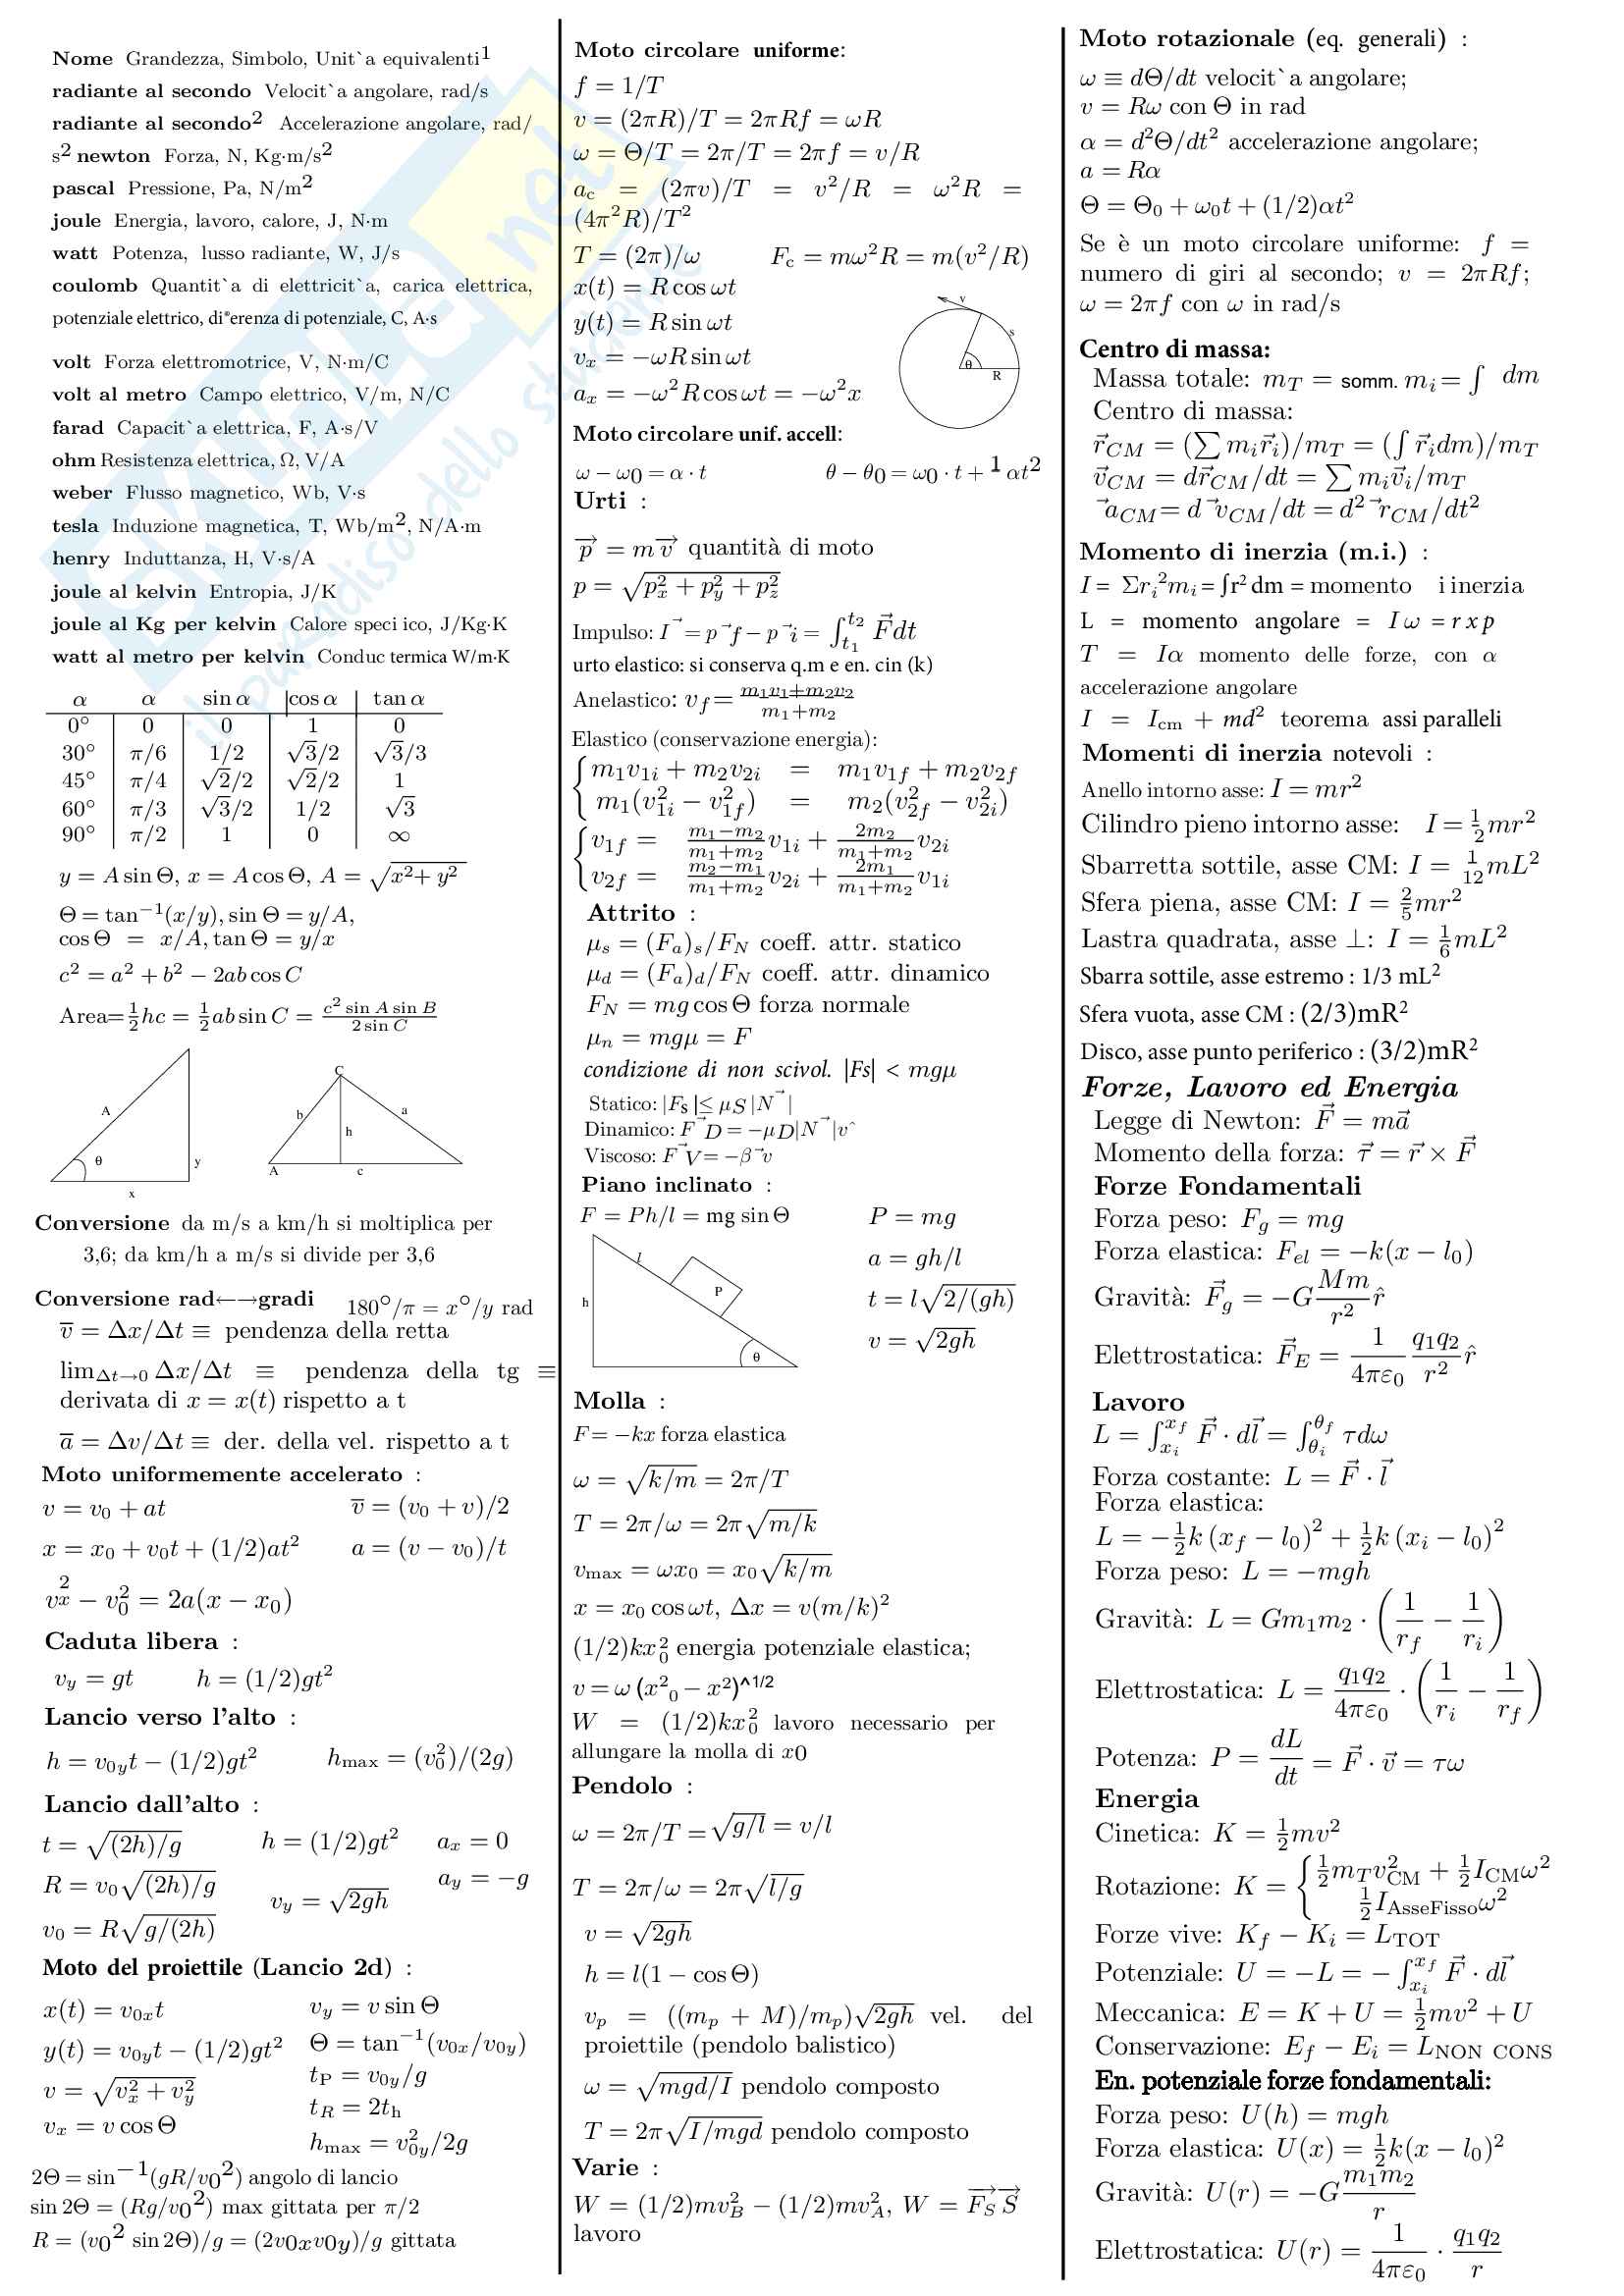 Nome Grandezza, Simbolo, Unit`a equivalenti1
radiante al secondo Velocit`a angolare, rad/s
radiante al secondo² Accelerazione angolare, rad/
s² newton Forza, N, Kg·m/s²
pascal Pressione, Pa, N/m²
joule Energia, lavoro, calore, J, N·m
watt Potenza, lusso radiante, W, J/s
coulomb Quantit`a di elettricit`a, carica elettrica,
potenziale elettrico, di"erenza di potenziale, C, A·s
volt Forza elettromotrice, V, N·m/C
volt al metro Campo elettrico, V/m, N/C
farad Capacit`a elettrica, F, A·s/V
ohm Resistenza elettrica, Ω, V/A
weber Flusso magnetico, Wb, V·s
tesla Induzione magnetica, T, Wb/m², N/A·m
henry Induttanza, H, V·s/A
joule al kelvin Entropia, J/K
joule al Kg per kelvin Calore speci ico, J/Kg·K
watt al metro per kelvin Conduc termica W/m·K
α α sin α cos α tan α
0° 0 0 1 0
30° π/6 1/2 √3/2 √3/3
45° π/4 √2/2 √2/2 1
60° π/3 √3/2 1/2 √3
90° π/2 1 0 ∞
y = A sin Θ, x = A cos Θ, A = √(x²+ y²)
Θ = tan⁻¹(x/y), sin Θ = y/A,
cos Θ = x/A, tan Θ = y/x
c² = a² + b² − 2ab cos C
Area=½hc = ½ab sin C = (c² sin A sin B)/(2 sin C)
A θ y x
C b a h A c
Conversione da m/s a km/h si moltiplica per
3,6; da km/h a m/s si divide per 3,6
Conversione rad←→gradi 180°/π = x°/y rad
v̄ = Δx/Δt ≡ pendenza della retta
lim_Δt→0 Δx/Δt ≡ pendenza della tg ≡
derivata di x = x(t) rispetto a t
ā = Δv/Δt ≡ der. della vel. rispetto a t
Moto uniformemente accelerato :
v = v₀ + at v̄ = (v₀ + v)/2
x = x₀ + v₀t + (1/2)at² a = (v − v₀)/t
vx² − v₀² = 2a(x − x₀)
Caduta libera :
v_y = gt h = (1/2)gt²
Lancio verso l'alto :
h = v₀yt − (1/2)gt² h_max = (v₀²)/(2g)
Lancio dall'alto :
t = √((2h)/g) h = (1/2)gt² a_x = 0
R = v₀√((2h)/g) v_y = √(2gh) a_y = −g
v₀ = R√(g/(2h))
Moto del proiettile (Lancio 2d) :
x(t) = v₀xt v_y = v sin Θ
y(t) = v₀yt − (1/2)gt² Θ = tan⁻¹(v₀x/v₀y)
v = √(v_x² + v_y²) t_P = v₀y/g
v_x = v cos Θ t_R = 2t_h
h_max = v₀y²/2g
2Θ = sin⁻¹(gR/v0²) angolo di lancio
sin 2Θ = (Rg/v0²) max gittata per π/2
R = (v0² sin 2Θ)/g = (2v0xv0y)/g gittata
Moto circolare uniforme:
f = 1/T
v = (2πR)/T = 2πRf = ωR
ω = Θ/T = 2π/T = 2πf = v/R
a_c = (2πv)/T = v²/R = ω²R =
(4π²R)/T²
T = (2π)/ω F_c = mω²R = m(v²/R)
x(t) = R cos ωt
y(t) = R sin ωt
v_x = −ωR sin ωt
a_x = −ω²R cos ωt = −ω²x
v s θ R
Moto circolare unif. accell:
ω − ω0 = α · t θ − θ0 = ω0 · t + 1 αt²
Urti :
p⃗ = mv⃗ quantità di moto
p = √(p_x² + p_y² + p_z²)
Impulso: I⃗ = p⃗f − p⃗i = ∫_t₁^t₂ F⃗dt
urto elastico: si conserva q.m e en. cin (k)
Anelastico: v_f = (m₁v₁+m₂v₂)/(m₁+m₂)
Elastico (conservazione energia):
m₁v₁i + m₂v₂i = m₁v₁f + m₂v₂f
m₁(v₁i² − v₁f²) = m₂(v₂f² − v₂i²)
v₁f = (m₁−m₂)/(m₁+m₂) v₁i + 2m₂/(m₁+m₂) v₂i
v₂f = (m₂−m₁)/(m₁+m₂) v₂i + 2m₁/(m₁+m₂) v₁i
Attrito :
μ_s = (F_a)_s/F_N coeff. attr. statico
μ_d = (F_a)_d/F_N coeff. attr. dinamico
F_N = mg cos Θ forza normale
μ_n = mgμ = F
condizione di non scivol. |Fs| < mgμ
Statico: |F_s| ≤ μ_S |N⃗|
Dinamico: F⃗_D = −μ_D|N⃗|vˆ
Viscoso: F⃗_V = −βv⃗
Piano inclinato :
F = Ph/l = mg sin Θ P = mg
a = gh/l
t = l√(2/(gh))
v = √(2gh)
l P h θ
Molla :
F = −kx forza elastica
ω = √(k/m) = 2π/T
T = 2π/ω = 2π√(m/k)
v_max = ωx₀ = x₀√(k/m)
x = x₀ cos ωt, Δx = v(m/k)²
(1/2)kx₀² energia potenziale elastica;
v = ω (x²₀ − x²)^1/2
W = (1/2)kx₀² lavoro necessario per
allungare la molla di x0
Pendolo :
ω = 2π/T = √(g/l) = v/l
T = 2π/ω = 2π√(l/g)
v = √(2gh)
h = l(1 − cos Θ)
v_p = ((m_p + M)/m_p)√(2gh) vel. del
proiettile (pendolo balistico)
ω = √(mgd/I) pendolo composto
T = 2π√(I/mgd) pendolo composto
Varie :
W = (1/2)mv_B² − (1/2)mv_A², W = F⃗_S S⃗
lavoro
Moto rotazionale (eq. generali) :
ω ≡ dΘ/dt velocit`a angolare;
v = Rω con Θ in rad
α = d²Θ/dt² accelerazione angolare;
a = Rα
Θ = Θ₀ + ω₀t + (1/2)αt²
Se è un moto circolare uniforme: f =
numero di giri al secondo; v = 2πRf;
ω = 2πf con ω in rad/s
Centro di massa:
Massa totale: m_T = somm. m_i = ∫ dm
Centro di massa:
r⃗_CM = (∑ m_i r⃗_i)/m_T = (∫ r⃗_i dm)/m_T
v⃗_CM = dr⃗_CM/dt = ∑ m_i v⃗_i/m_T
a⃗_CM = dv⃗_CM/dt = d²r⃗_CM/dt²
Momento di inerzia (m.i.) :
I = Σr_i²m_i = ∫r² dm = momento i inerzia
L = momento angolare = I ω = r x p
T = Iα momento delle forze, con α
accelerazione angolare
I = I_cm + md² teorema assi paralleli
Momenti di inerzia notevoli :
Anello intorno asse: I = mr²
Cilindro pieno intorno asse: I = ½mr²
Sbarretta sottile, asse CM: I = 1/12 mL²
Sfera piena, asse CM: I = 2/5 mr²
Lastra quadrata, asse ⊥: I = 1/6 mL²
Sbarra sottile, asse estremo : 1/3 mL²
Sfera vuota, asse CM : (2/3)mR²
Disco, asse punto periferico : (3/2)mR²
Forze, Lavoro ed Energia
Legge di Newton: F⃗ = ma⃗
Momento della forza: τ⃗ = r⃗ × F⃗
Forze Fondamentali
Forza peso: F_g = mg
Forza elastica: F_el = −k(x − l₀)
Gravità: F⃗_g = −G Mm/r² r̂
Elettrostatica: F⃗_E = 1/(4πε₀) q₁q₂/r² r̂
Lavoro
L = ∫_xi^xf F⃗ · dl⃗ = ∫_θi^θf τdω
Forza costante: L = F⃗ · l⃗
Forza elastica:
L = −½k (x_f − l₀)² + ½k (x_i − l₀)²
Forza peso: L = −mgh
Gravità: L = Gm₁m₂ · (1/r_f − 1/r_i)
Elettrostatica: L = q₁q₂/(4πε₀) · (1/r_i − 1/r_f)
Potenza: P = dL/dt = F⃗ · v⃗ = τω
Energia
Cinetica: K = ½mv²
Rotazione: K = { ½m_T v²_CM + ½I_CM ω²
½I_AsseFisso ω²
Forze vive: K_f − K_i = L_TOT
Potenziale: U = −L = −∫_xi^xf F⃗ · dl⃗
Meccanica: E = K + U = ½mv² + U
Conservazione: E_f − E_i = L_NON CONS
En. potenziale forze fondamentali:
Forza peso: U(h) = mgh
Forza elastica: U(x) = ½k(x − l₀)²
Gravità: U(r) = −G m₁m₂/r
Elettrostatica: U(r) = 1/(4πε₀) · q₁q₂/r
skuola.net
il paradiso dello studente